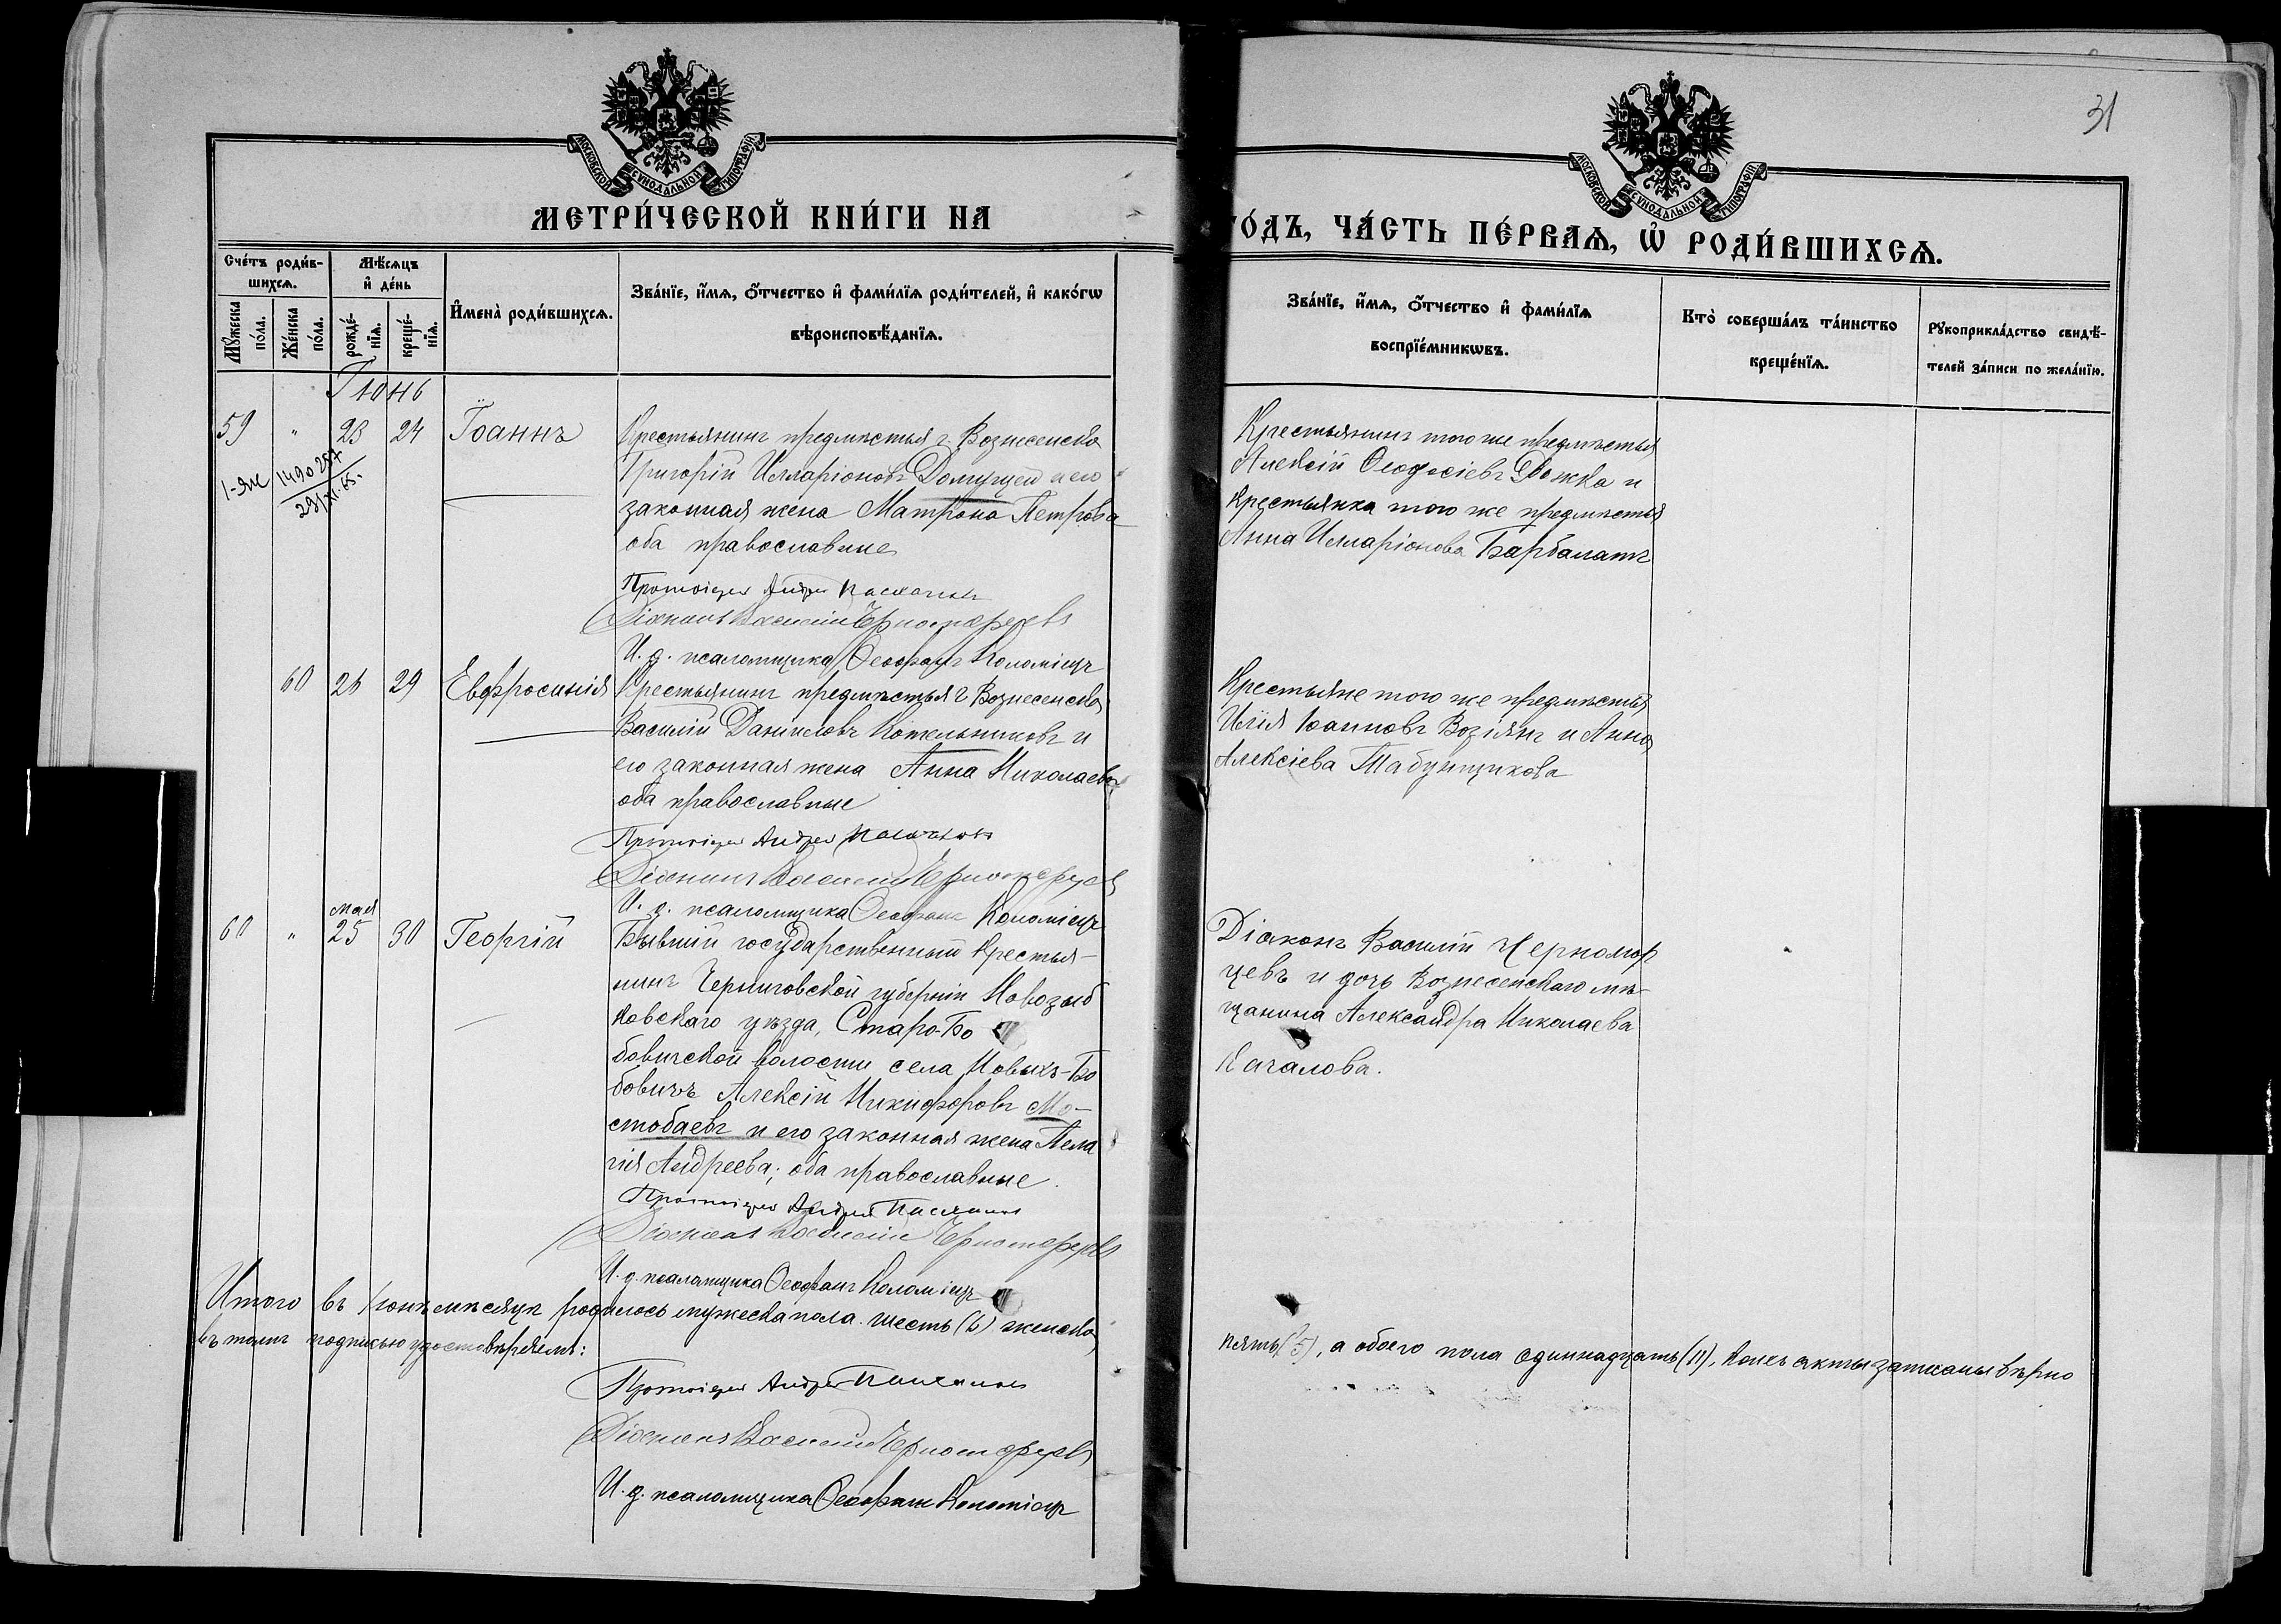 31
МОСКОВСКОЙ СѴНОДАЛЬНОЙ ТИПОГРАФІИ
МОСКОВСКОЙ СѴНОДАЛЬНОЙ ТИПОГРАФІИ
МЕТРИ́ЧЕСКОЙ КНИ́ГИ НА
ГО́ДЪ, ЧА́СТЬ ПЕ́РВАѦ, Ѡ҆ РОДИ́ВШИХСѦ.
Сче́тъ роди́в-
шихсѧ.
Мꙋ́жеска по́ла.
Же́нска по́ла.
Мѣ́сѧцъ
и҆ де́нь
рожде́-нїѧ.
креще́-нїѧ.
И҆мена̀ роди́вшихсѧ.
Зва́нїе, и҆́мѧ, ѻ҆́тчество и҆ фами́лїѧ роди́телей, и҆ како́гѡ
вѣроисповѣ́данїѧ.
Зва́нїе, и҆́мѧ, ѻ҆́тчество и҆ фами́лїѧ
воспрїе́мникѡвъ.
Кто̀ соверша́лъ та́инство
креще́нїѧ.
Рꙋкоприкла́дство свидѣ́-
телей за́писи по жела́нїю.
Іюнь
59 " 23 24 Іоаннъ
Крестьянинъ предмѣстья г. Вознесенска
Григорій Илларіоновъ Домущей и его
законная жена Матрона Петрова
оба православные
Протоіерей Андрей
Діаконъ Василій Черноморцевъ
И. д. псаломщика Ѳеофанъ Коломіецъ
1490257
29/XI.65.
Крестьянинъ того же предмѣстья
Алексій Ѳеодосіевъ и
крестьянка того же предмѣстья
Анна Илларіонова Барбалатъ
60 26 29 Евфросинія
Крестьянинъ предмѣстья г Вознесенска
Василій Даниловъ Котельниковъ и
его законная жена Анна Николаева,
оба православные
Протоіерей Андрей
Діаконъ Василій Черноморцевъ
И. д. псаломщика Ѳеофанъ Коломіецъ
Крестьяне того же предмѣстья
Илія Іоанновъ Возіянъ и Анна
Алексіева Табунщикова
мая
60 " 25 30 Георгій
Бывшій государственный крестья-
нинъ Черниговской губерніи Новозыб
ковскаго уѣзда, Старо-Бо
бовичской волости села Новыхъ-Бо
бовичъ Алексій Никифоровъ Мо-
стобаевъ и его законная жена Пела
гія Андреева; оба православные.
Протоіерей Андрей
Діаконъ Василій Черноморцевъ
И. д. псаломщика Ѳеофанъ Коломіецъ
Діаконъ Василій Черномор
цевъ и дочь Вознесенскаго мѣ-
щанина Александра Николаева
Качалова.
Итого въ Іюнѣ мѣсяцѣ родилось мужеска пола шесть (6) женска
пять (5), а обоего пола одиннадцать (11), коихъ акты записаны вѣрно
въ томъ подписью удостовѣряемъ:
Протоіерей Андрей
Діаконъ Василій Черноморцевъ
И. д. псаломщика Ѳеофанъ Коломіецъ